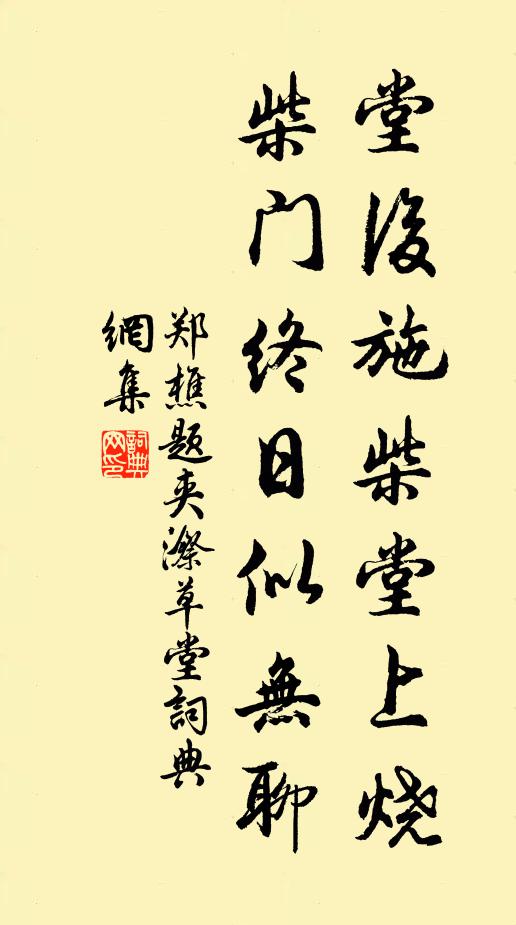 堂後施柴堂上烧
柴门终日似無聊
郑樵题夹漈草堂詞典
網集
詞典网印